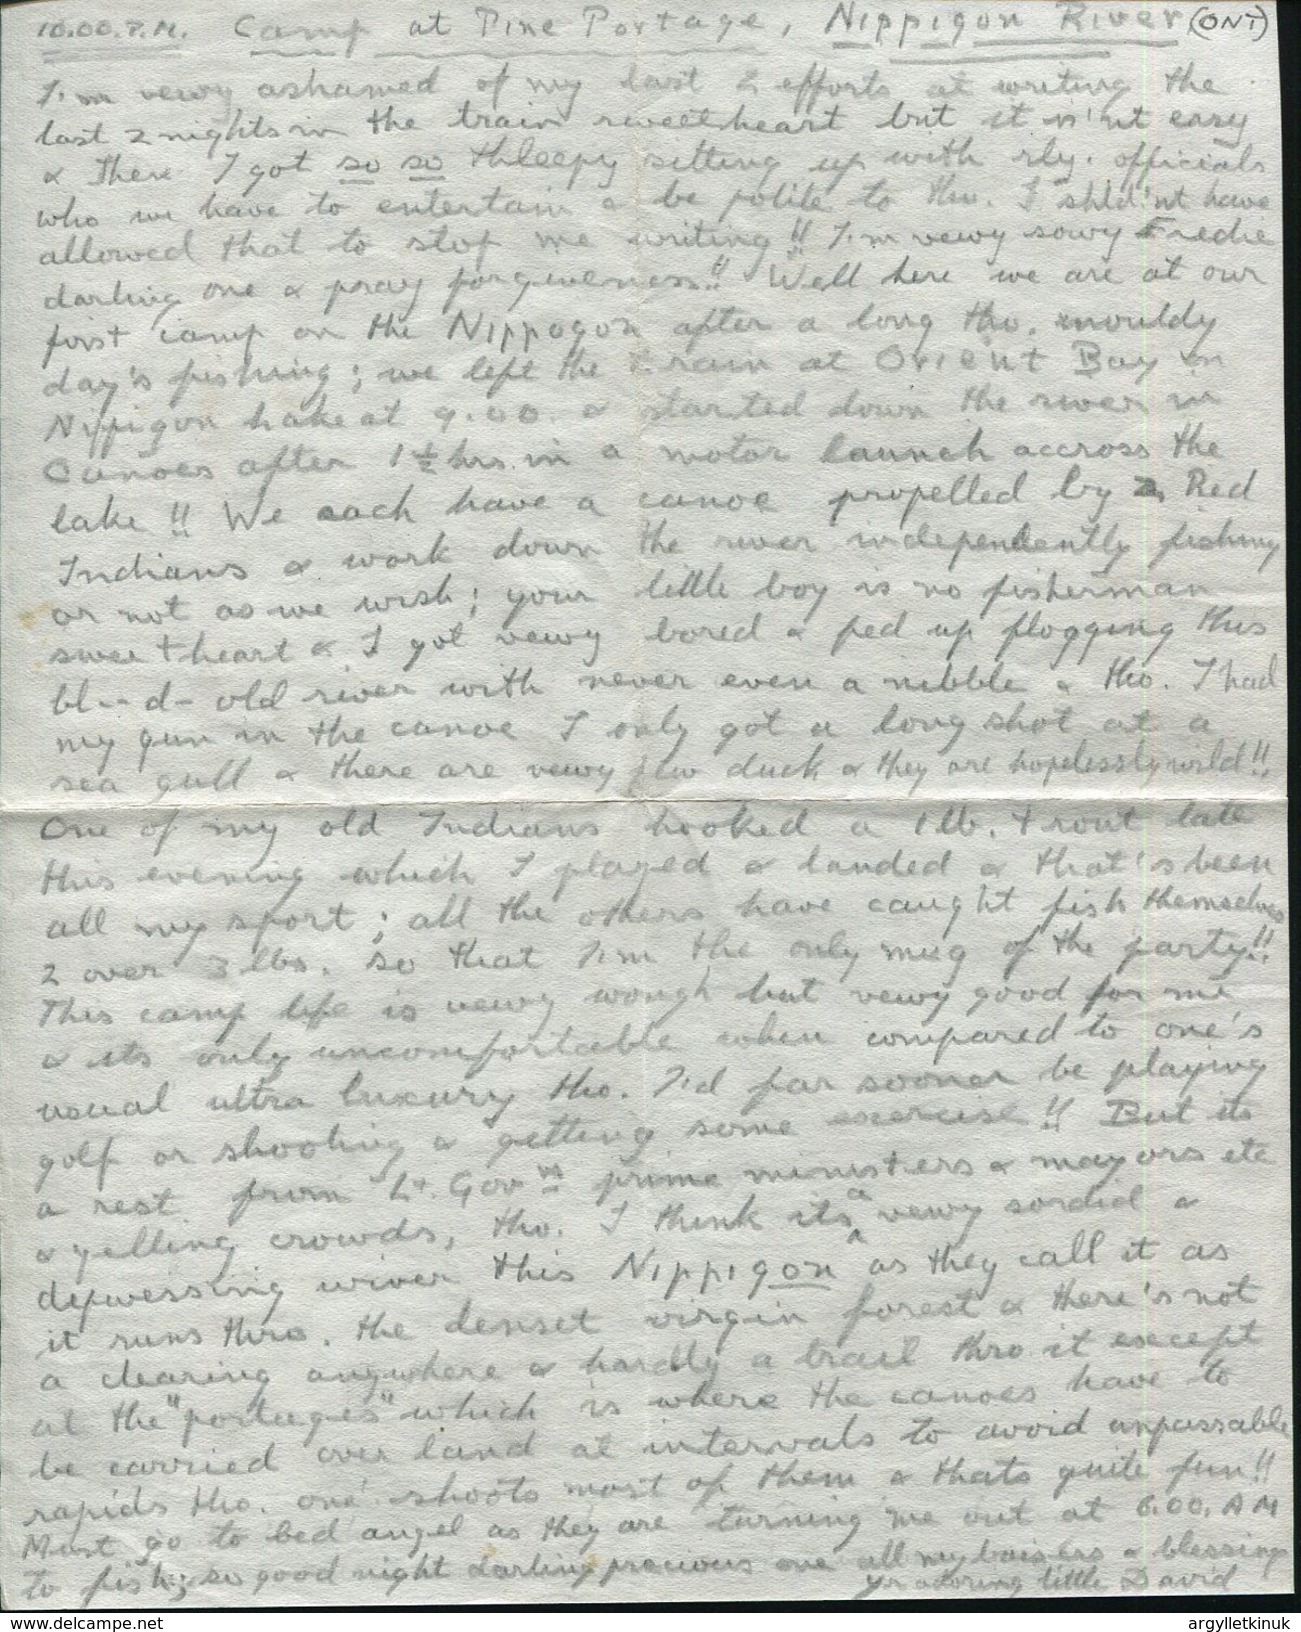 10.00.P.M. Camp at Pine Portage, Nippigon River (ONT)
I'm vewy ashamed of my last 2 efforts at writing the
last 2 nights in the train sweetheart but it is'nt easy
& then I got so so thleepy sitting up with rly. officials
who we have to entertain & be polite to tho. I shld'nt have
allowed that to stop me writing!! I'm vewy sowy Fredie
darling one & pray forgiveness!! Well here we are at our
first camp on the Nippogon after a long tho. mouldy
day's fishing; we left the train at Orient Bay in
Nipigon Lake at 9.00. & started down the river in
canoes after 1½ hrs. in a motor launch accross the
lake!! We each have a canoe propelled by 2 Red
Indians & work down the river independently fishing
or not as we wish; your little boy is no fisherman
sweetheart & I got vewy bored & fed up flogging this
bl--d- old river with never even a nibble & tho. I had
my gun in the canoe I only got a long shot at a
sea gull & there are vewy few duck & they are hopelessly wild!!
One of my old Indians hooked a 1 lb. trout late
this evening which I played & landed & that's been
all my sport; all the others have caught fish themselves
2 over 3 lbs. so that I'm the only mug of the party!!
This camp life is vewy wough but vewy good for me
& its only uncomfortable when compared to one's
usual ultra luxury tho. I'd far sooner be playing
golf or shooting & getting some exercise!! But its
a rest from Lt. Govrs prime ministers & mayors etc
& yelling crowds, tho. I think its a vewy sordid &
depwessing wiver this Nippigon as they call it as
it runs thro. the denset virgin forest & there's not
a clearing anywhere & hardly a trail thro it except
at the "portages" which is where the canoes have to
be carried over land at intervals to avoid unpassable
rapids tho. one shoots most of them & thats quite fun!!
Must go to bed angel as they are turning me out at 6.00. AM
to fish; so good night darling precious one all my baisers & blessings
yr adoring little David
argylletkinuk